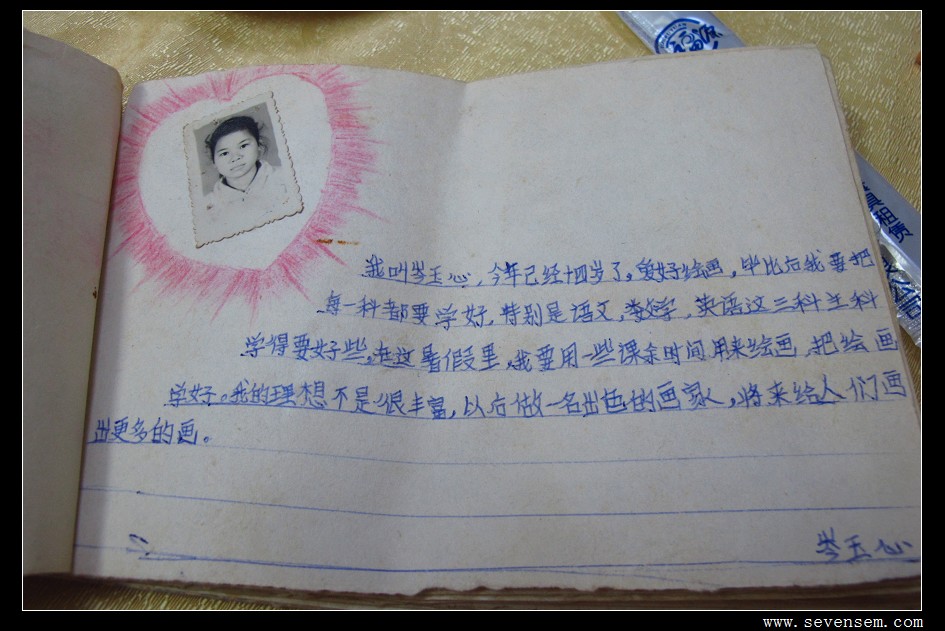 我叫岑玉心，今年已经十四岁了。爱好绘画，毕业后我要把
每一科都要学好，特别是语文，数学，英语这三科主科
学得要好些，在这暑假里，我要用一些课余时间用来绘画，把绘画
学好。我的理想不是很丰富，以后做一名出色的画家，将来给人们画
出更多的画。
岑玉心
www.sevensem.com